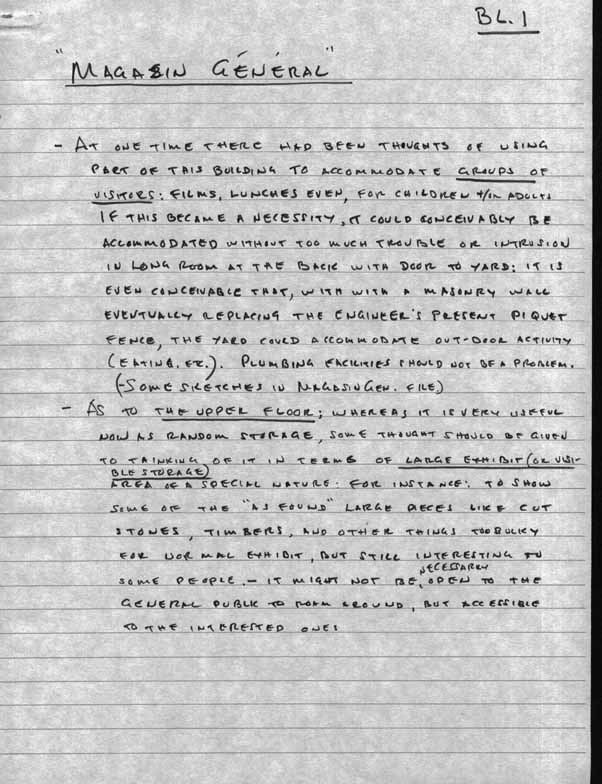 BL.1
"MAGASIN GÉNÉRAL"
- AT ONE TIME THERE HAD BEEN THOUGHTS OF USING
PART OF THIS BUILDING TO ACCOMMODATE GROUPS OF
VISITORS: FILMS, LUNCHES EVEN, FOR CHILDREN &/OR ADULTS
IF THIS BECAME A NECESSITY, IT COULD CONCEIVABLY BE
ACCOMMODATED WITHOUT TOO MUCH TROUBLE OR INTRUSION
IN LONG ROOM AT THE BACK WITH DOOR TO YARD: IT IS
EVEN CONCEIVABLE THAT, WITH WITH A MASONRY WALL
EVENTUALLY REPLACING THE ENGINEER'S PRESENT PIQUET
FENCE, THE YARD COULD ACCOMMODATE OUT-DOOR ACTIVITY
(EATING, ETC.). PLUMBING FACILITIES SHOULD NOT BE A PROBLEM.
(-SOME SKETCHES IN MAGASIN GEN. FILE)
- AS TO THE UPPER FLOOR; WHEREAS IT IS VERY USEFUL
NOW AS RANDOM STORAGE, SOME THOUGHT SHOULD BE GIVEN
TO THINKING OF IT IN TERMS OF LARGE EXHIBIT (OR VISI-
BLE STORAGE)
AREA OF A SPECIAL NATURE: FOR INSTANCE: TO SHOW
SOME OF THE "AS FOUND" LARGE PIECES LIKE CUT
STONES, TIMBERS, AND OTHER THINGS TOO BULKY
FOR NORMAL EXHIBIT, BUT STILL INTERESTING TO
NECESSARRY
SOME PEOPLE. - IT MIGHT NOT BE, OPEN TO THE
GENERAL PUBLIC TO ROAM AROUND, BUT ACCESSIBLE
TO THE INTERESTED ONES